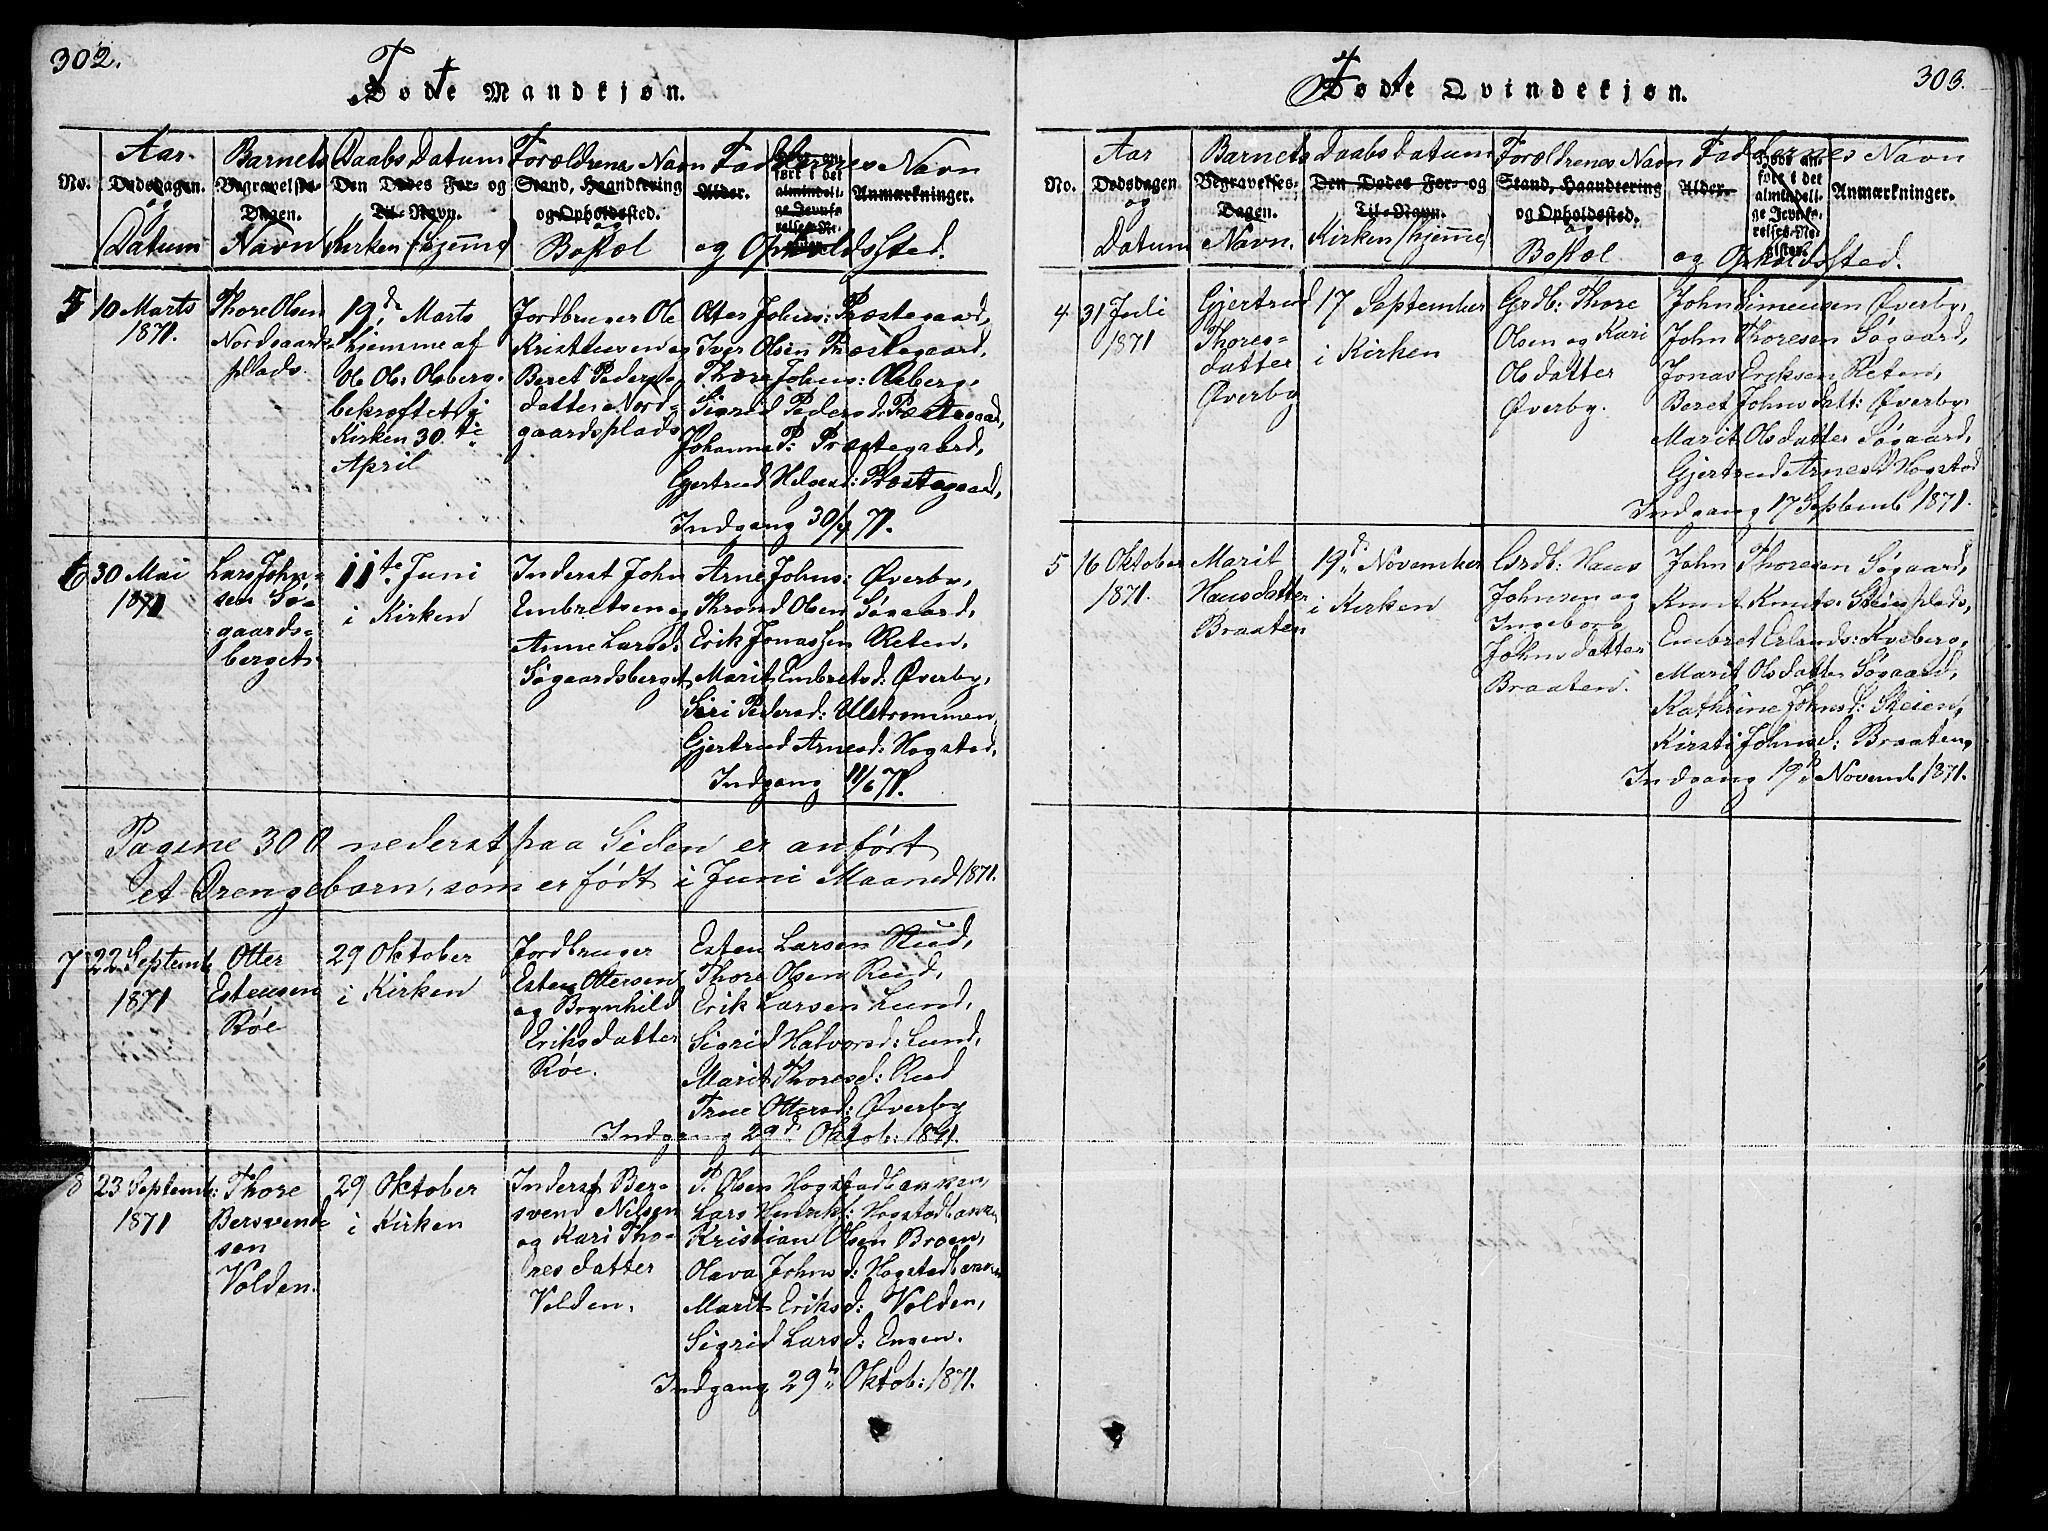 302.
Føde Mandkjøn.
No.
Aar.
Dødsdagen.
og
Datum
Barnets
Begravelses-
Dagen.
Navn
Daabs Datum
Den Dødes For- og
Til-Navn.
Kirken (hjemme)
Forældrenes Navn
Stand, Haandtering
og Opholdssted.
og
Bopæl
Faddernes Navn
Alder.
Anmærkninger.
og Opholdssted.
5
10 Marts
1871.
Thore Olsen
Nordgaards-
plads.
19de Marts
hjemme af
Ole Ols: Olsberg.
bekræftet i
Kirken 30.te
April
Jordbruger Ole
Kristensen og
Beret Peders-
datter Nord-
gaardsplads
Otter Johns: Præstegaard,
Iver Olsen Præstegaard,
Thore Johns: Olsberg,
Sigrid Pedersd: Præstegaard,
Johanna P: Præstegaard,
Gjertrud Helgesd: Præstegaard,
Indgang 30/4 71.
6
30 Mai
1871
Lars John-
sen Sø-
gaards-
berget.
11te Juni
i Kirken
Inderst John
Embretsen og
Anne Larsd:
Søgaardsberget
Arne Johns: Øverby,
Thrond Olsen Søgaard,
Erik Jonassen Reten,
Marit Embretsd: Øverby,
Siri Pedersd: Ulstrommen,
Gjertrud Arnesd: Hogstad,
Indgang 11/6 71.
Pagine 300 nederst paa Siden er anført
et Drengebarn, som er født i Juni Maaned 1871.
7
22 Septemb
1871
Otter
Estensen
Røe
29 Oktober
i Kirken
Jordbruger
Esten Ottersen
og Brynhild
Eriksdatter
Røe.
Esten Larsen Rud,
Thore Olsen Rud,
Erik Larsen Lund,
Sigrid Halvorsd: Lund,
Marit Thoresd: Rud
True Ottersd: Øverby
Indgang 29d Oktob: 1871.
8
23 Septemb:
1871
Thore
Bersvend-
sen
Volden.
29 Oktober
i Kirken
Inderst Ber-
svend Nilsen
og Kari Tho-
resdatter
Volden.
P. Olsen Hogstadbakken,
Lars Henriks: Hogstadbakken
Kristian Olsen Broen,
Olava Johnsd: Hogstadbakken
Marit Eriksd: Volden,
Sigrid Larsd: Engen.
Indgang 29de Oktob: 1871.
303.
Føde Qvindekjøn.
No.
Aar
Dødsdagen
og
Datum
Barnets
Begravelses-
Dagen.
Navn.
Daabs Datum
Den Dødes For- og
Til-Navn.
Kirken (hjemme)
Forældrenes Navn
Stand, Haandtering
og Opholdssted.
og
Bopæl
Faddernes Navn
Alder.
Anmærkninger.
og Opholdssted.
4
31 Juli
1871
Gjertrud
Thores-
datter
Øverby
17 September
i Kirken
Grdb: Thore
Olsen og Kari
Olsdatter
Øverby.
John Simensen Øverby,
John Thoresen Søgaard,
Jonas Eriksen Reten,
Beret Johnsdatt: Øverby.
Marit Olsdatter Søgaard,
Gjertrud Arnesd Hogstad
Indgang 17 Septemb 1871.
5
16 Oktober
1871.
Marit
Hansdatter
Braaten
19d November
i Kirken
Grdb: Hans
Johnsen og
Ingeborg
Johnsdatter
Braaten.
John Thoresen Søgaard,
Knut Knuts: Steiesplads,
Embret Erlands: Kveberg,
Marit Olsdatter Søgaard,
Kathrine Johnsd: Steien,
Kirsti Johnsd: Braaten,
Indgang 19d Novemb 1871.